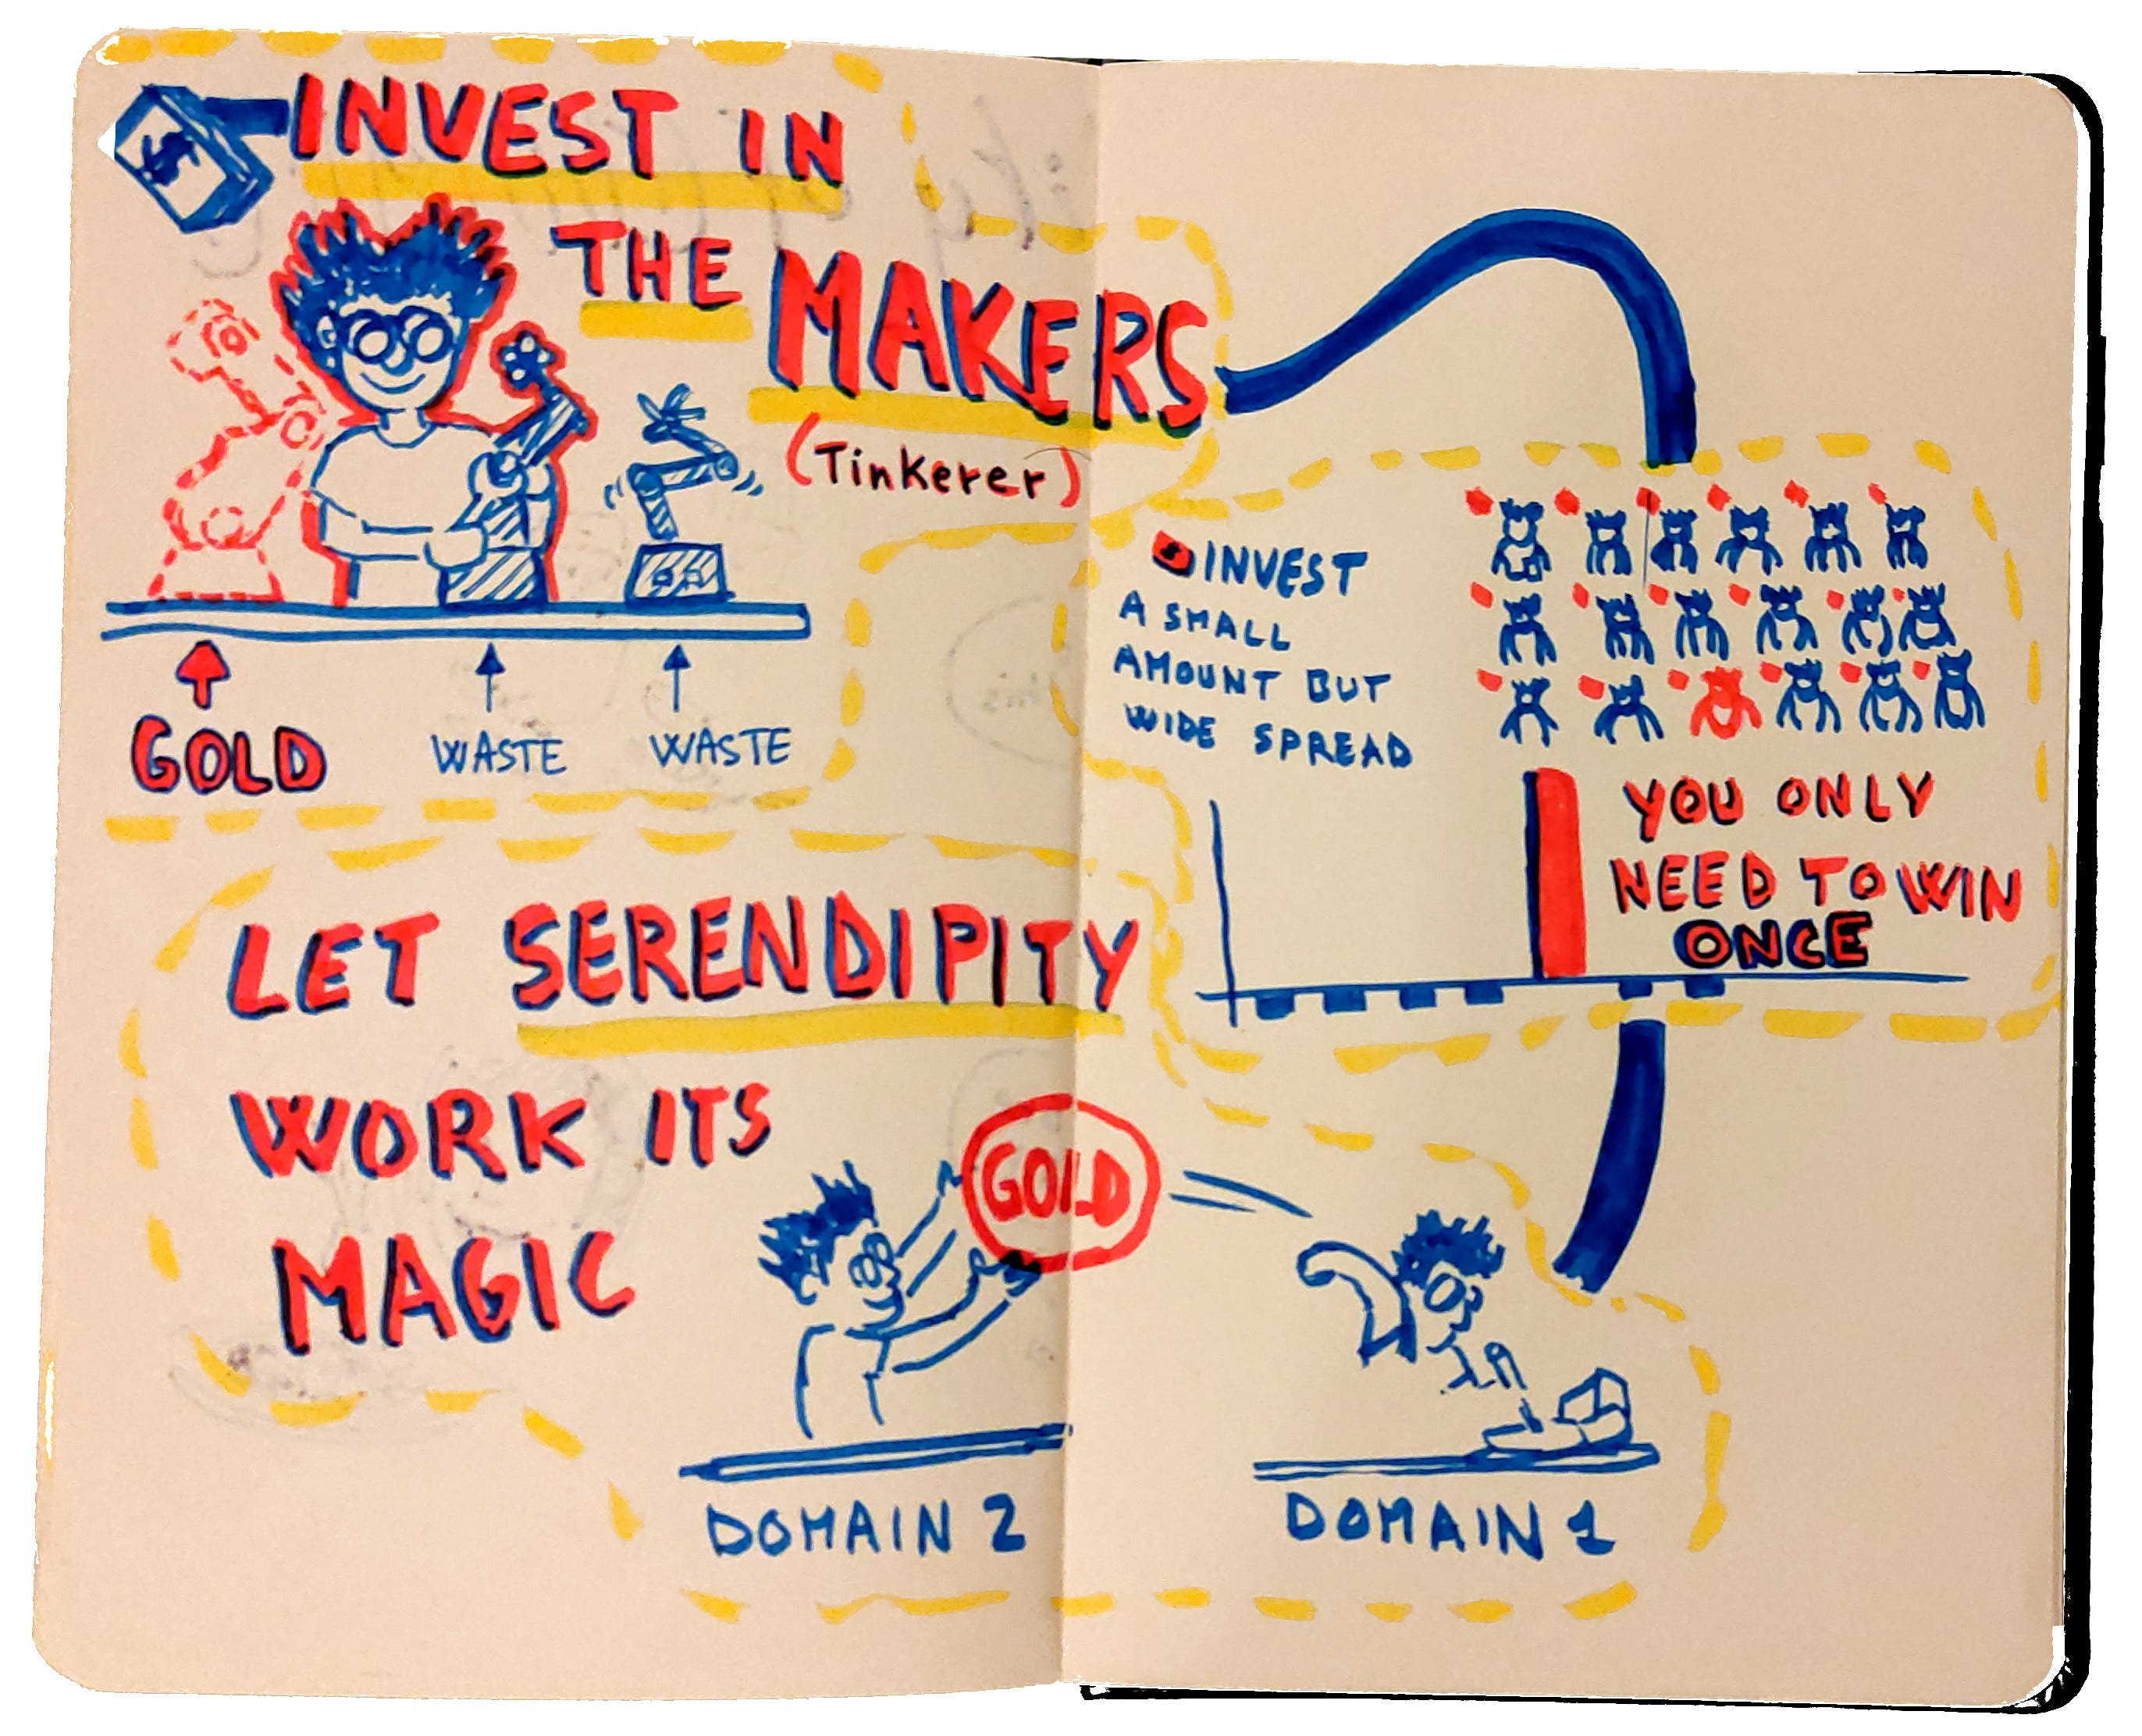 $
INVEST IN
THE MAKERS
(Tinkerer)
GOLD
WASTE
WASTE
INVEST
A SMALL
AMOUNT BUT
WIDE SPREAD
YOU ONLY
NEED TO WIN
ONCE
LET SERENDIPITY
WORK ITS
MAGIC
GOLD
DOMAIN 2
DOMAIN 1